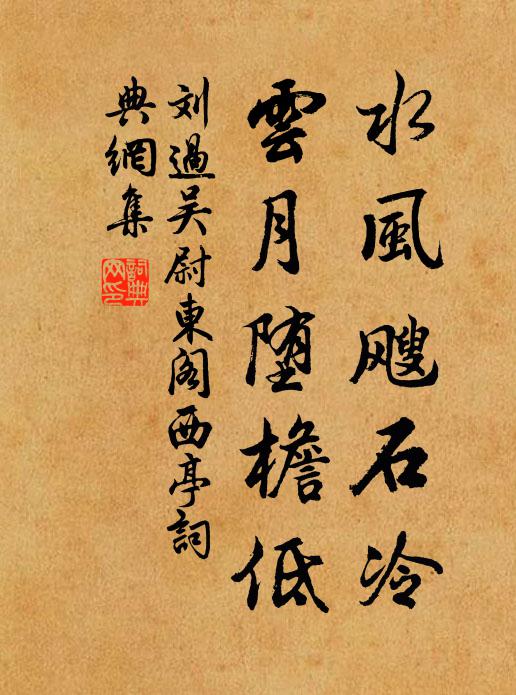 水風飕石冷
雲月堕檐低
刘過吴尉東阁西亭詞
典網集
詞典网印